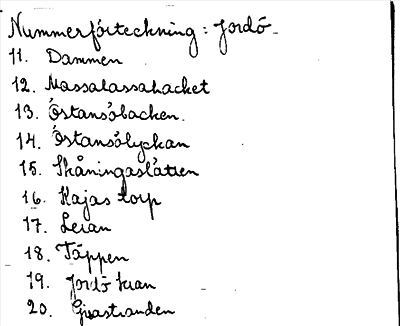 Nummerförteckning: Jordö
11. Dammen
12. Massalassahacket
13. Östansöbacken.
14. Östansölyckan
15. Skåningaslätten
16. Kajas torp
17. Leran
18. Täppen
19. Jordö kran
20. Gisastranden